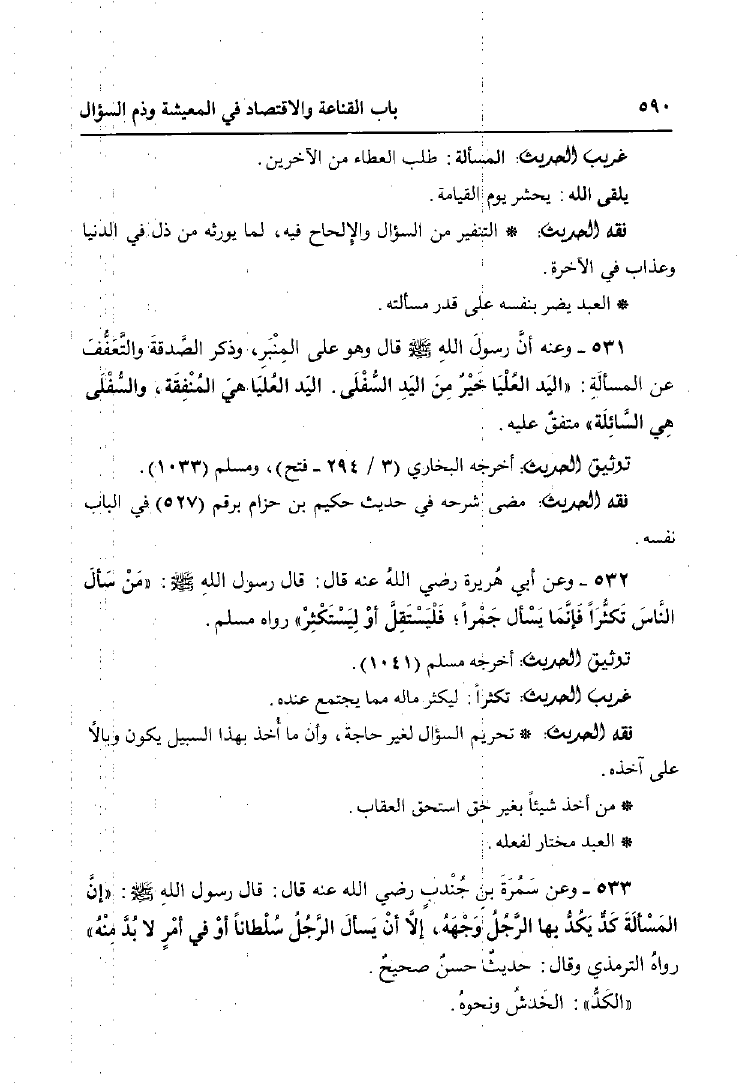 ٥٩٠ باب القناعة والاقتصاد في المعيشة وذم السؤال
غريب الحديث: المسألة: طلب العطاء من الآخرين.
يلقى الله: يحشر يوم القيامة.
فقه الحديث: * التنفير من السؤال والإلحاح فيه، لما يورثه من ذل في الدنيا
وعذاب في الآخرة.
* العبد يضر بنفسه على قدر مسألته.
٥٣١ ـ وعنه أنَّ رسولَ اللهِ ﷺ قال وهو على المِنْبَرِ، وذكر الصَّدقةَ والتَّعَفُّفَ
عن المسألَةِ: «اليَد العُلْيَا خَيْرٌ مِنَ اليَدِ السُّفْلَى. اليَد العُليَا هيَ المُنْفِقَة، والسُّفْلَى
هِيَ السَّائِلَة» متفقٌ عليه.
توثيق الحديث: أخرجه البخاري (٣ / ٢٩٤ ـ فتح)، ومسلم (١٠٣٣).
فقه الحديث: مضى شرحه في حديث حكيم بن حزام برقم (٥٢٧) في الباب
نفسه.
٥٣٢ ـ وعن أبي هُريرة رضي اللهُ عنه قال: قال رسول اللهِ ﷺ: «مَنْ سَألَ
النَّاسَ تَكثُّرَاً فَإنَّمَا يَسْأل جَمْراً؛ فَلْيَسْتَقِلَّ أوْ لِيَسْتَكْثِرْ» رواه مسلم.
توثيق الحديث: أخرجه مسلم (١٠٤١).
غريب الحديث: تكثراً: ليكثر ماله مما يجتمع عنده.
فقه الحديث: * تحريم السؤال لغير حاجة، وأن ما أُخذ بهذا السبيل يكون وبالاً
على آخذه.
* من أخذ شيئاً بغير حق استحق العقاب.
* العبد مختار لفعله.
٥٣٣ ـ وعن سَمُرَةَ بنِ جُندبٍ رضي الله عنه قال: قال رسول اللهِ ﷺ: «إنَّ
المَسْألَةَ كَدٌّ يَكُدُّ بها الرَّجُلُ وَجْهَهُ، إلاَّ أنْ يَسألَ الرَّجُلُ سُلْطاناً أوْ في أمْرٍ لا بُدَّ مِنْهُ»
رواهُ الترمذي وقال: حديثٌ حسنٌ صحيحٌ.
«الكَدُّ»: الخَدشُ ونحوهُ.